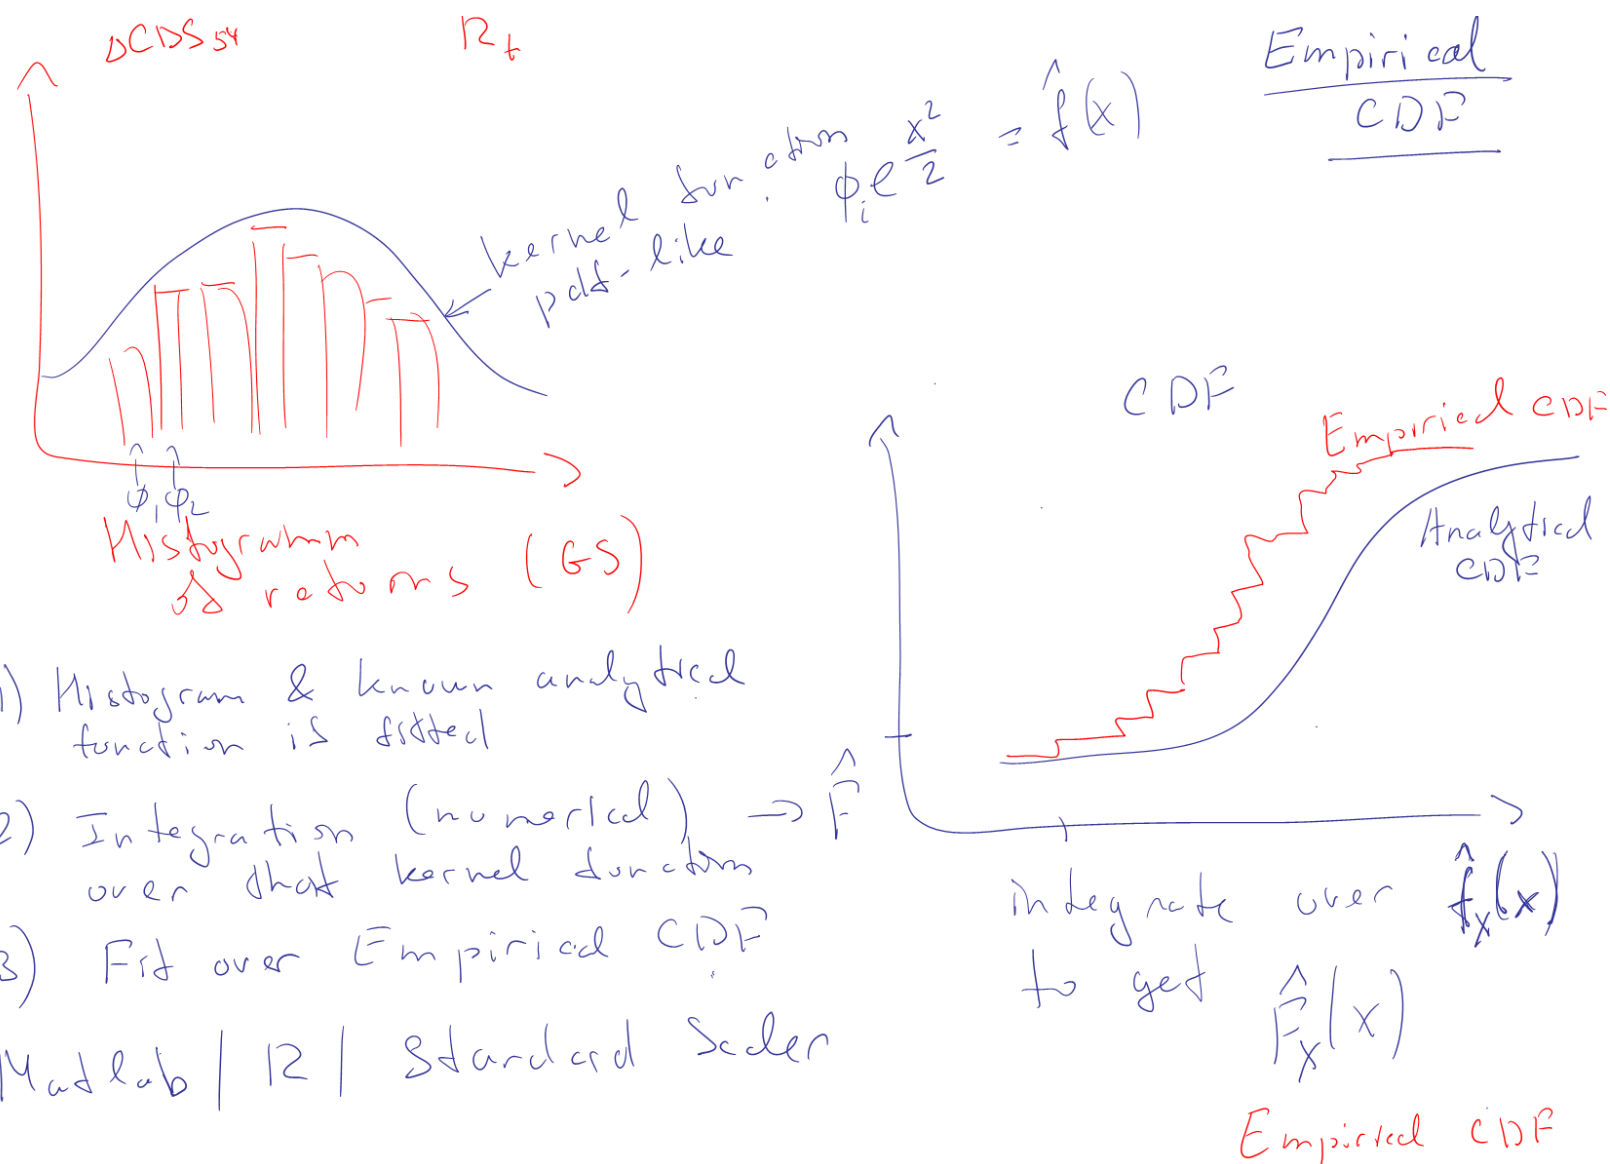 ΔCDS 5Y
R_t
Empirical
CDF
kernel function
pdf-like
ϕ_i e^{x²/2} = f̂(x)
CDF
Empirical CDF
Analytical
CDF
ϕ_1 ϕ_2
Histogramm
of returns (GS)
1) Histogram & known analytical
function is fitted
2) Integration (numerical) → F̂
over that kernel function
3) Fit over Empirical CDF
Matlab | R | Standard Scaler
integrate over f̂_X(x)
to get F̂_X(x)
Empirical CDF